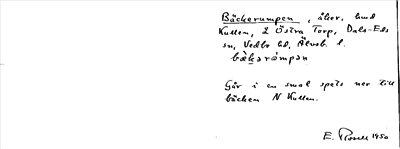 Bäckerumpen, åker, hmd
Kullen, 2 Östra Torp, Dals-Eds
sn, Vedbo hd, Älvsb. l.
Går i en smal spets ner till
bäcken N Kullen.
E. 1950